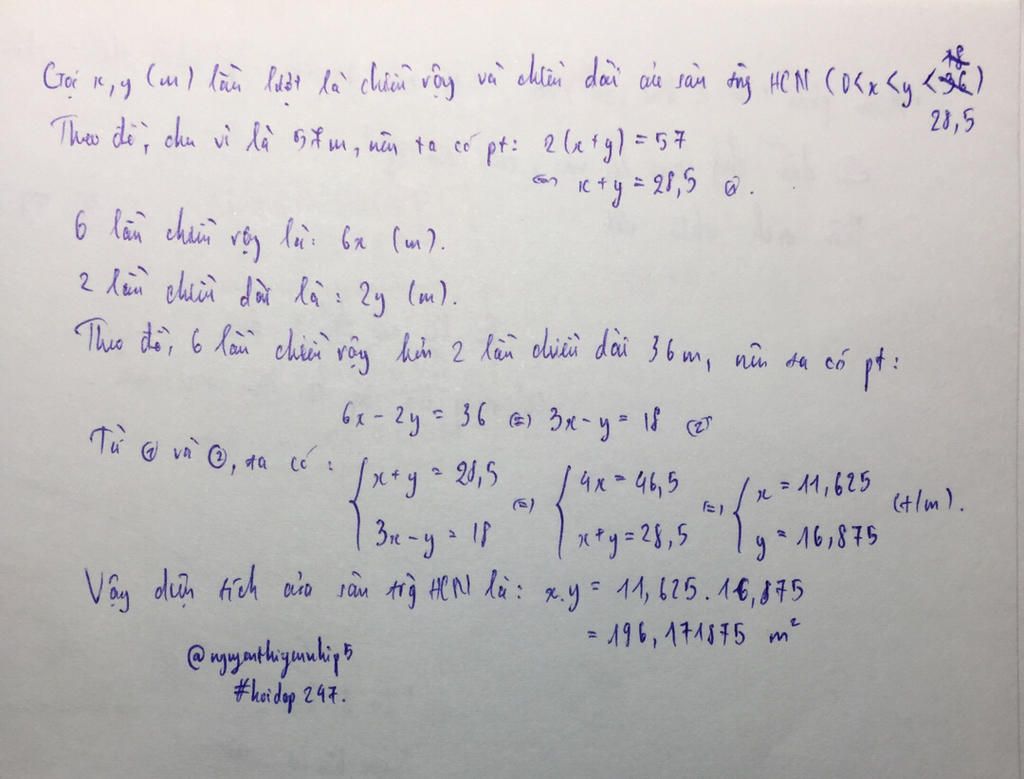 Gọi x, y (m) lần lượt là chiều rộng và chiều dài của sân trg HCN (0 < x < y < 28,5)
Theo đề, chu vi là 57m, nên ta có pt: 2(x+y) = 57
<=> x+y = 28,5 ①.
6 lần chiều rộng là: 6x (m).
2 lần chiều dài là: 2y (m).
Theo đề, 6 lần chiều rộng hơn 2 lần chiều dài 36m, nên ta có pt:
6x - 2y = 36 <=> 3x - y = 18 ②
Từ ① và ②, ta có: { x+y = 28,5 <=> { 4x = 46,5 <=> { x = 11,625 (t/m).
3x - y = 18 x+y = 28,5 y = 16,875
Vậy diện tích của sân trg HCN là: x.y = 11,625. 16,875
= 196,171875 m²
@nguyenthiyennhip5
#hoidap247.